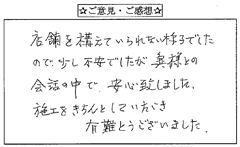 ☆ご意見・ご感想☆
店舗を構えていられない様子でした
ので、少し不安でしたが奥様との
会話の中で、安心致しました。
施工をきちんとしていただき
有難とうございました。